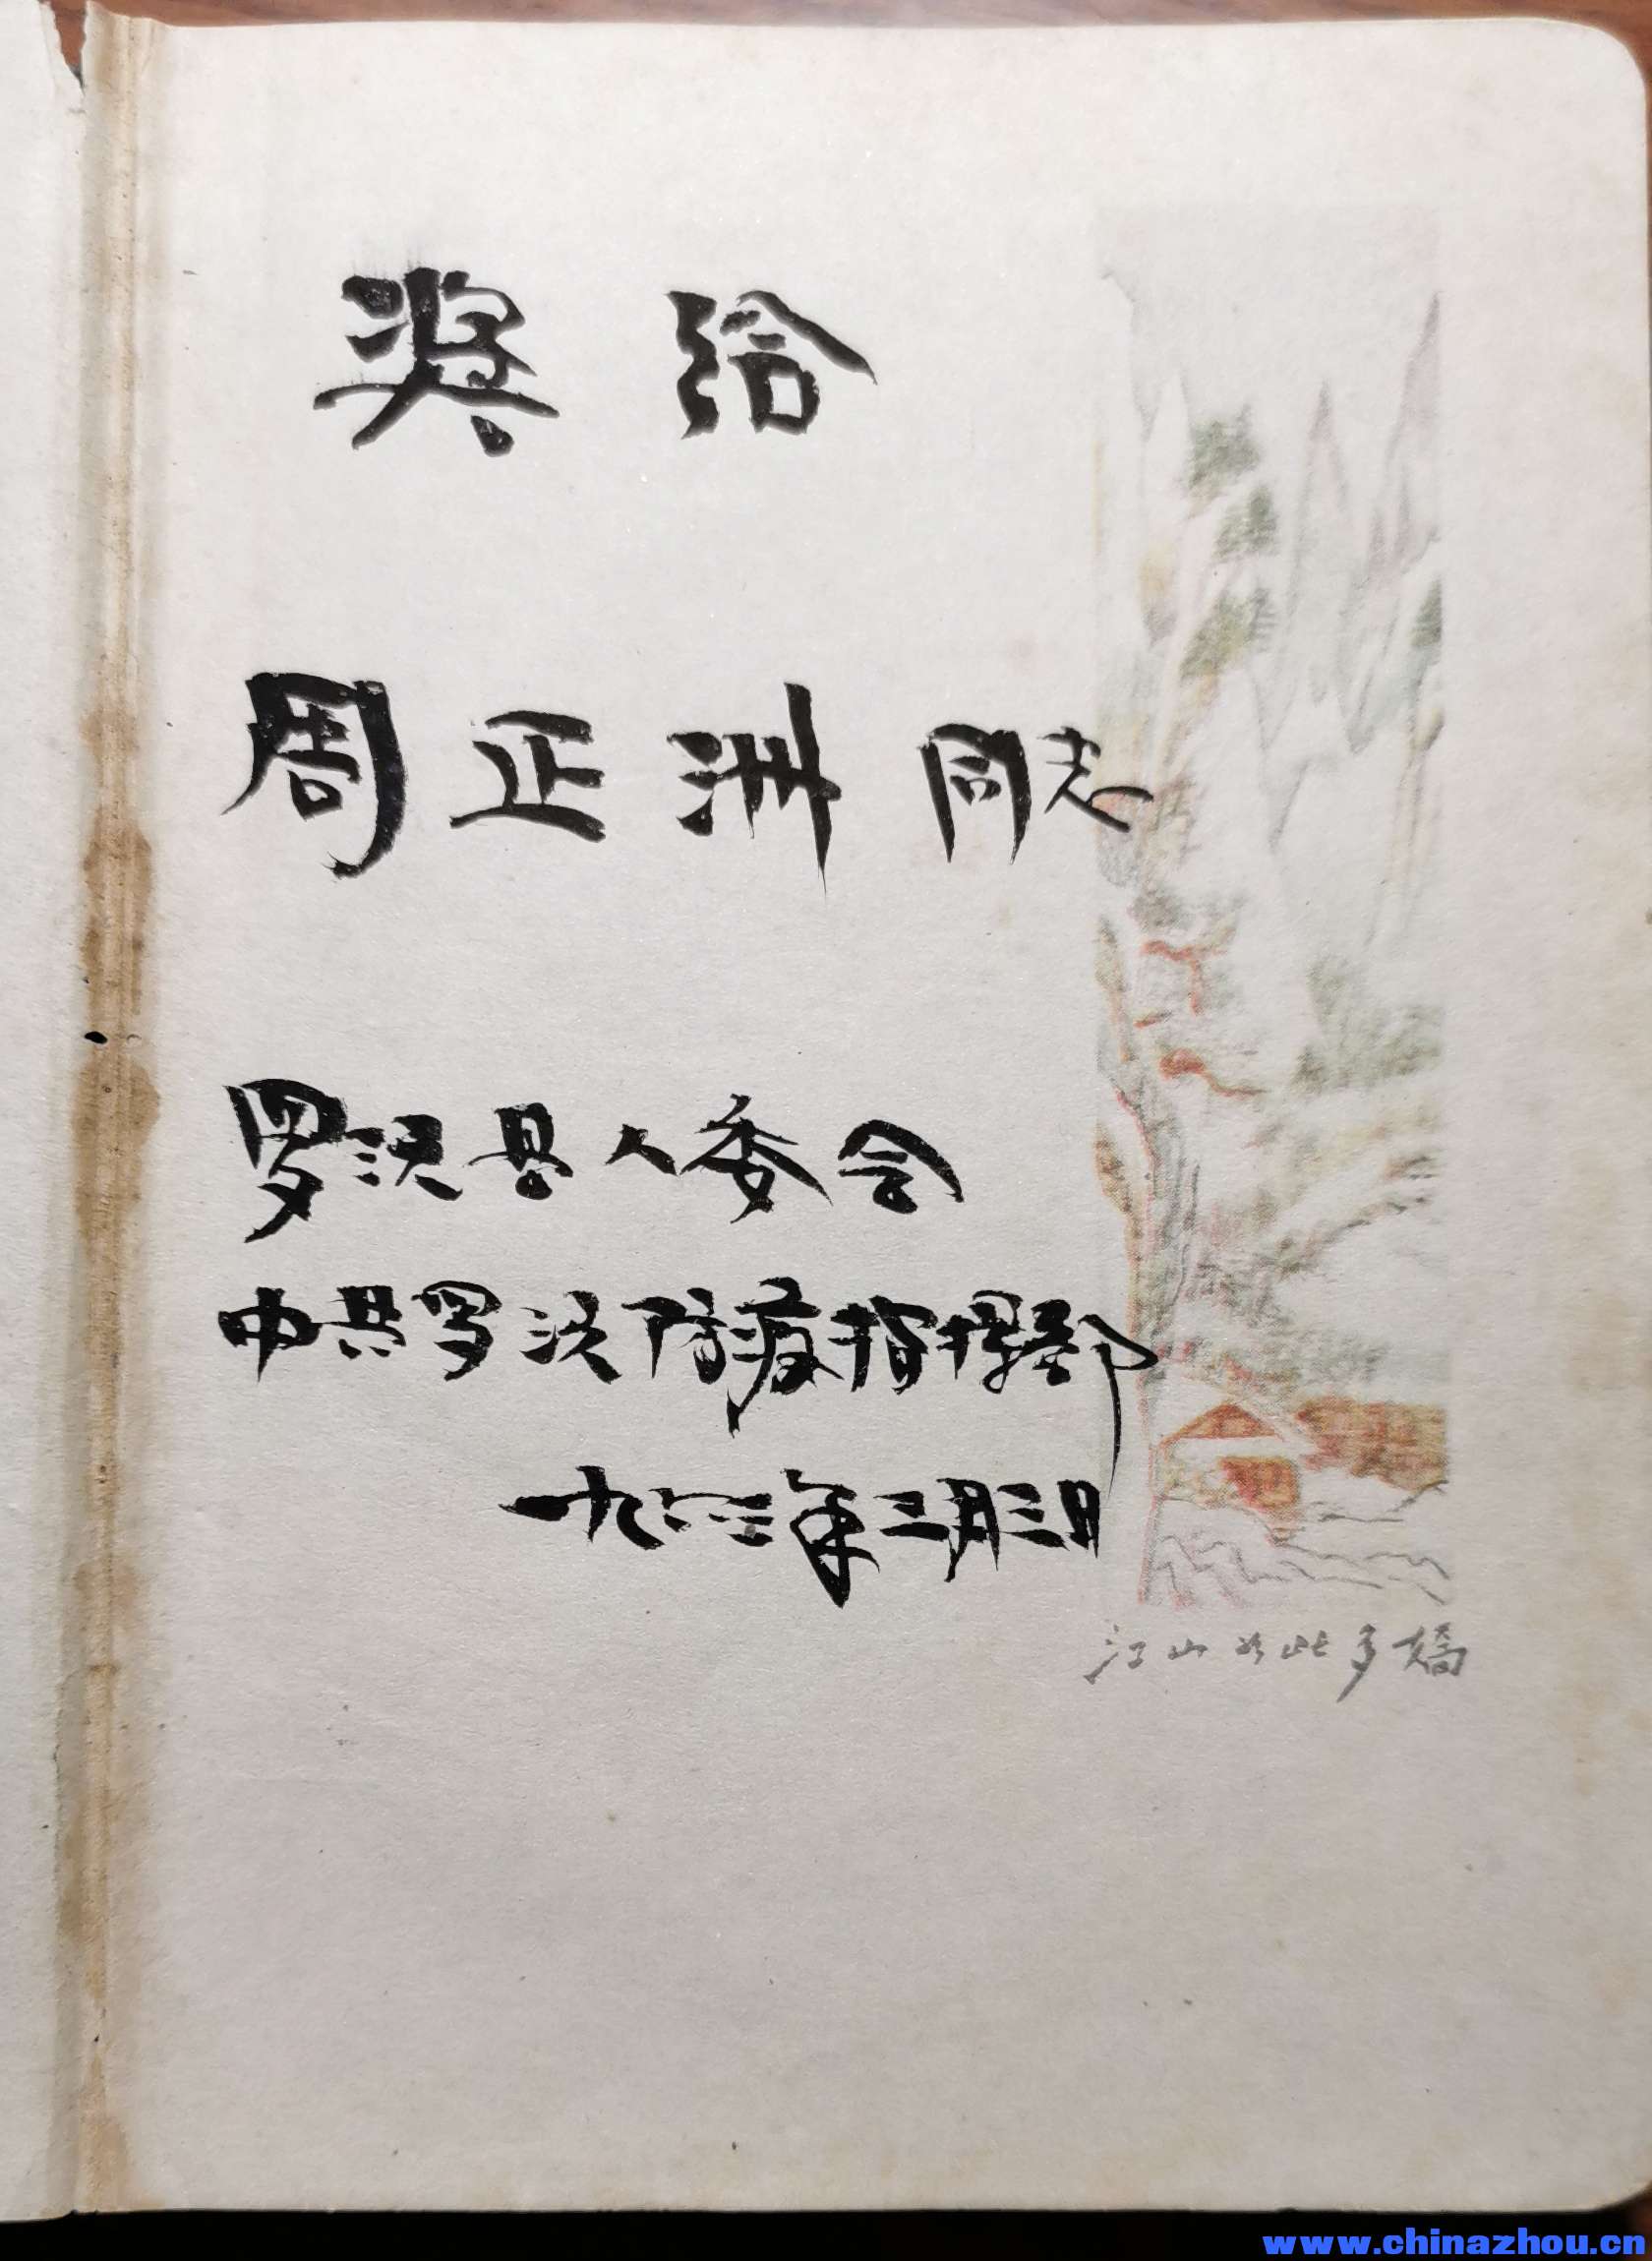 奖给
周正洲同志
罗汉县人委会
中共罗汉防疫指挥部
一九六三年三月三日
江山如此多娇
www.chinazhou.cn